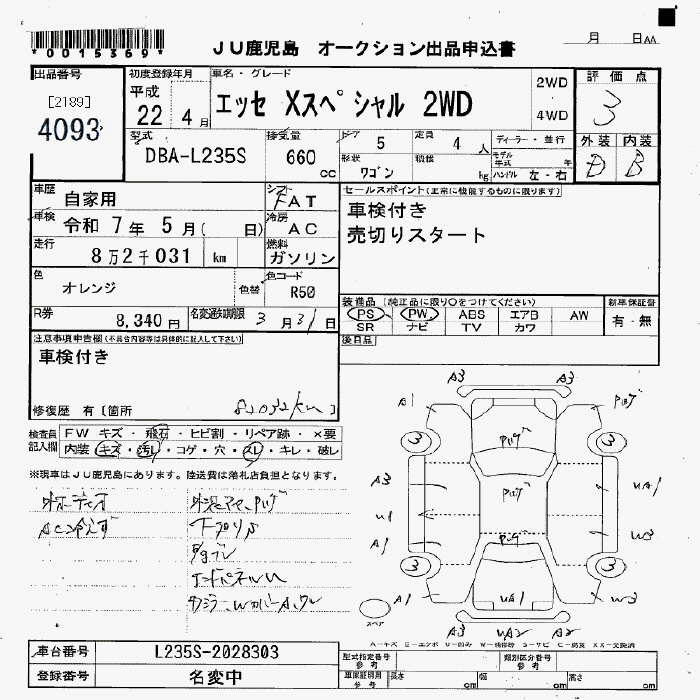 *0015369*
JU鹿児島 オークション出品申込書
月 日AA
出品番号
[2189]
4093
初度登録年月
平成
22年 4月
車名・グレード
エッセ Xスペシャル 2WD
2WD
4WD
評価点
3
型式
DBA-L235S
排気量
660
cc
ドア 5
形状 ワゴン
定員 4 人
積載
kg
ディーラー・並行
モデル年式 年
ハンドル 左・右
外装 内装
D B
車歴 自家用
シフト FAT
車検 令和 7年 5月( 日)
冷房 AC
走行 8万2千031 km
燃料 ガソリン
色 オレンジ
色替
色コード R50
R券 8,340円
名変通知期限 3月31日
セールスポイント(正常に機能するものに限ります)
車検付き
売切りスタート
装備品(純正品に限り○をつけてください)
新車保証書
PS PW ABS エアB AW
SR ナビ TV カワ
有・無
後日品
注意事項申告欄(不具合内容等は具体的に記入して下さい)
車検付き
修復歴 有[箇所
82032km]
検査員
記入欄
FW キズ・飛石・ヒビ割・リペア跡・×要
内装 キズ・汚レ・コゲ・穴・スレ・キレ・破レ
※現車はJU鹿児島にあります。陸送費は落札店負担となります。
A3 A3
A1
3 3
A3 UA1
U1
A1 W3
3 3
A1 UA1 W3
A3 UA2 A2
スペア
A-キズ E-エクボ U-凹み W-補修跡 S-サビ C-腐食 XX-交換済
車台番号 L235S-2028303
登録番号 名変中
型式指定番号
参考
類別区分番号
参考
車庫証明用
参考
長さ cm
幅 cm
高さ cm